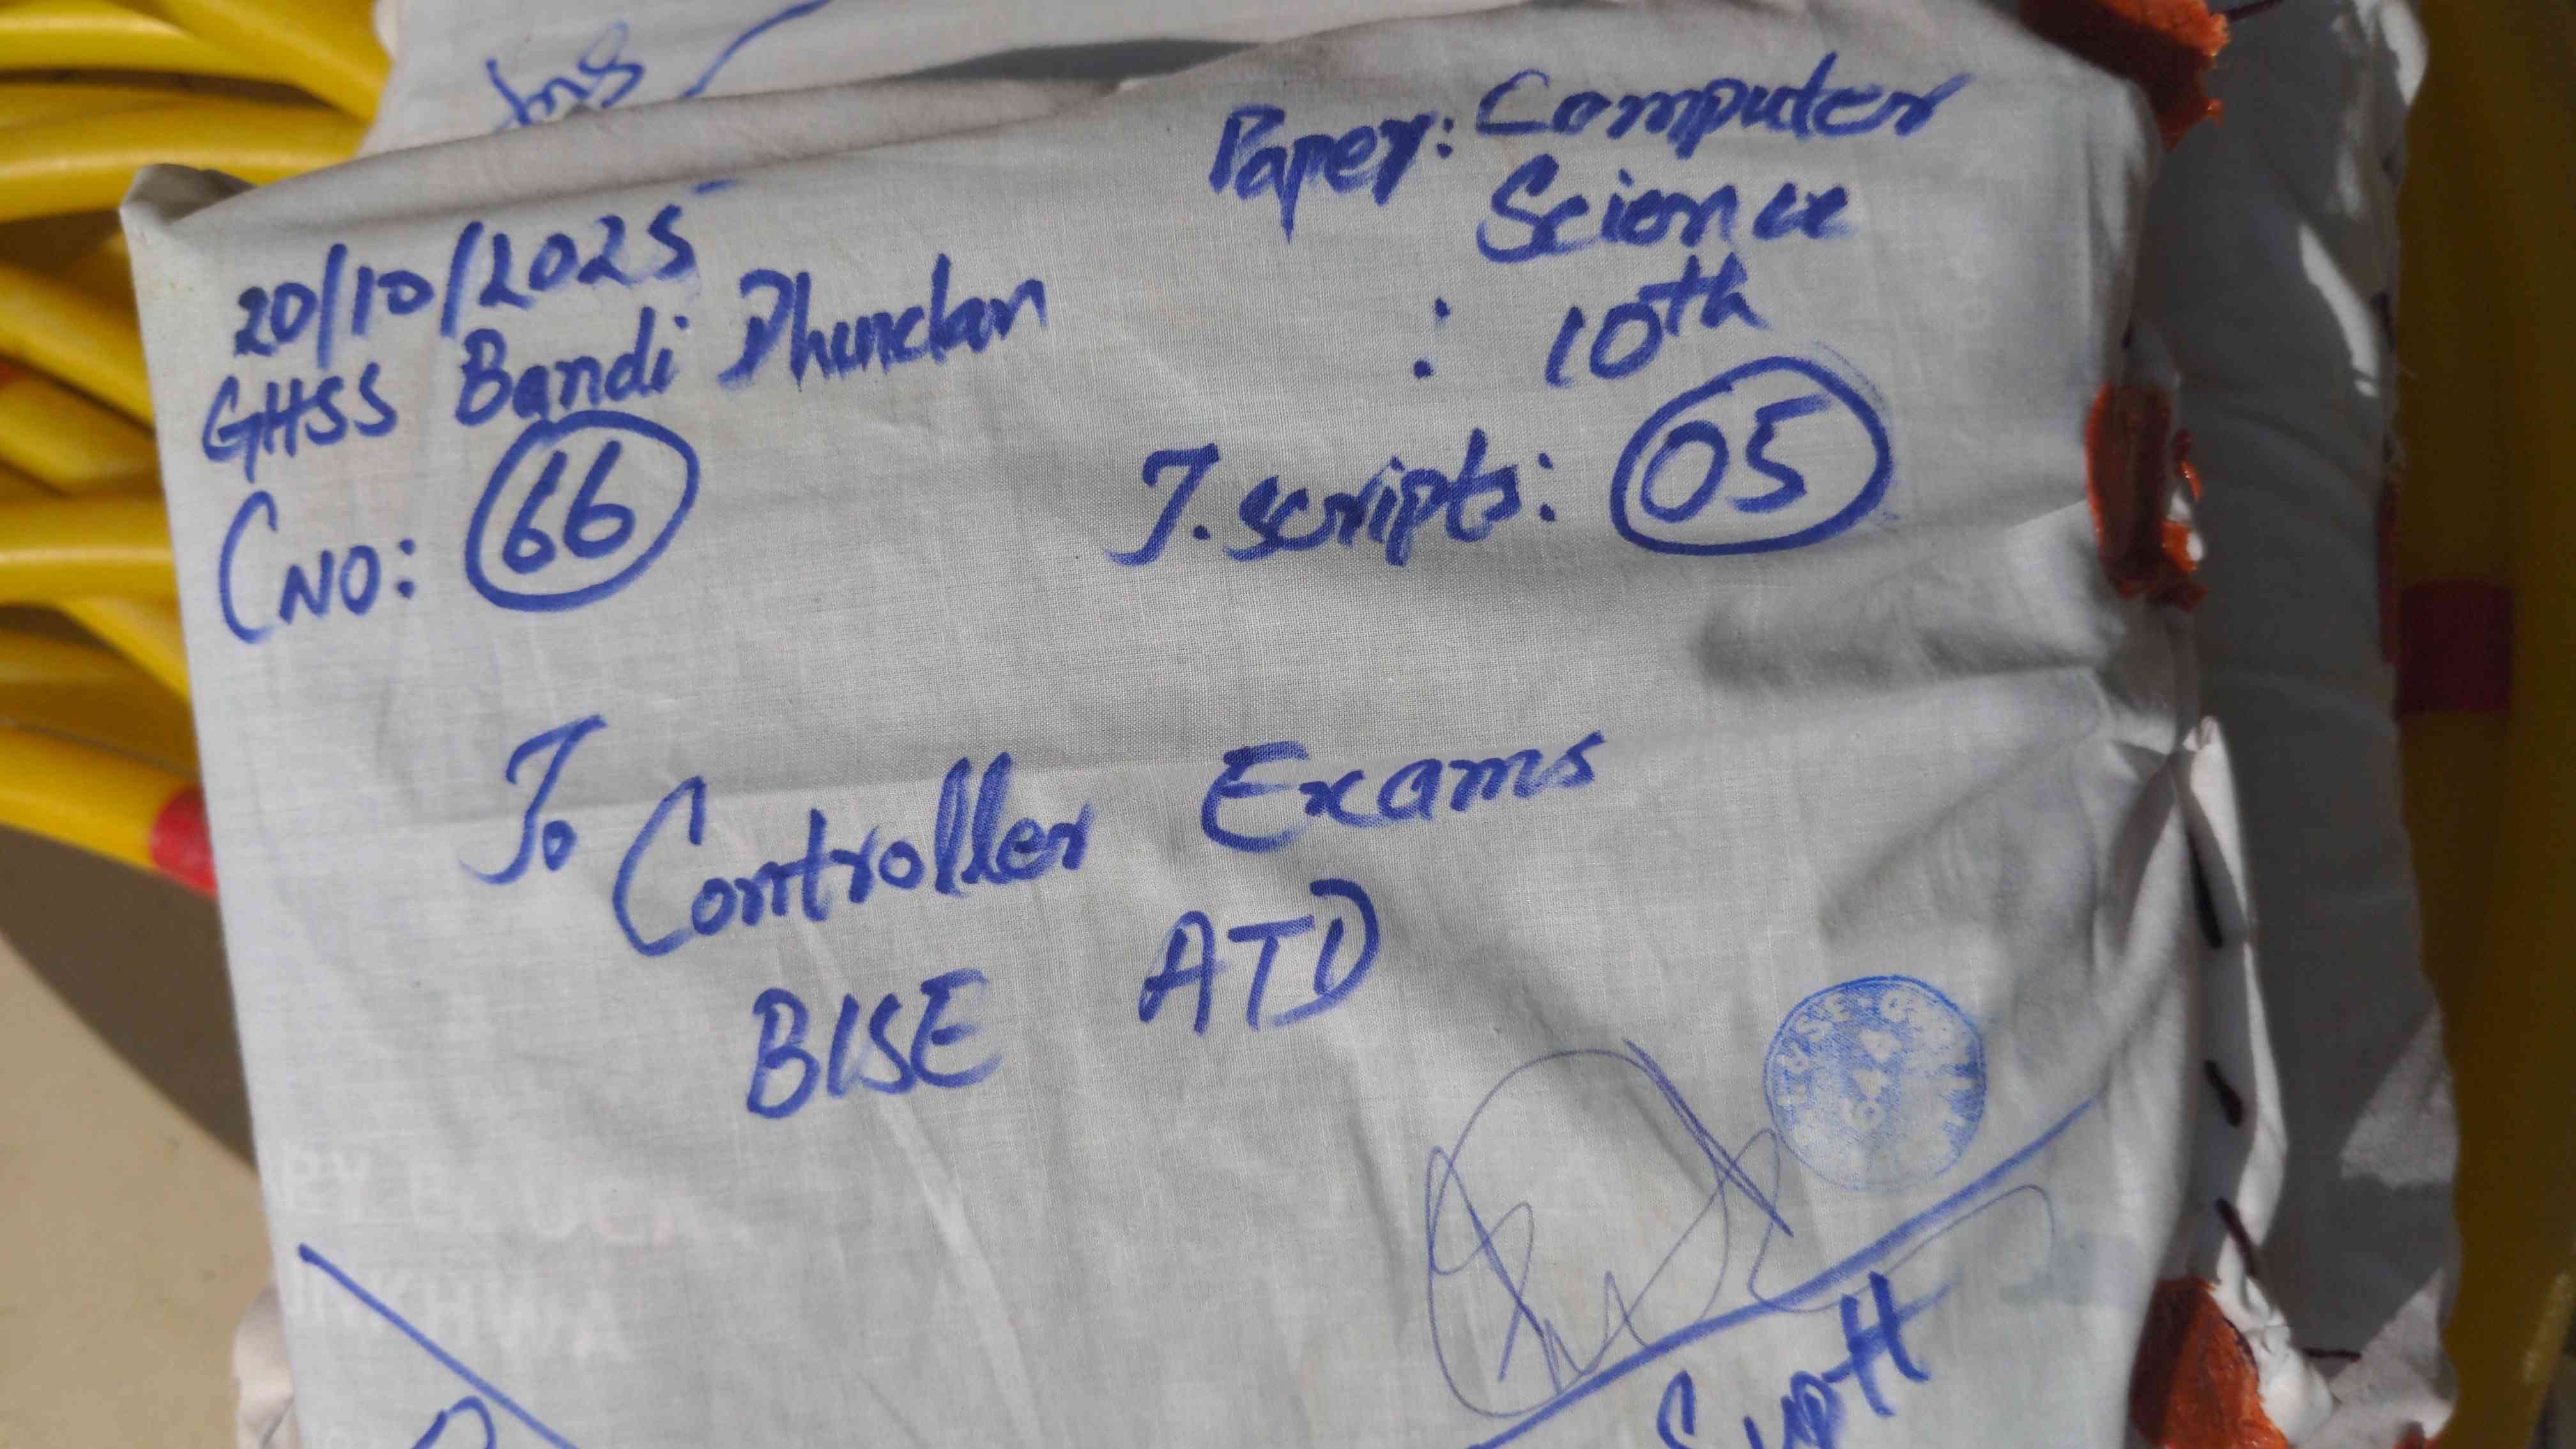 Paper: Computer
Science
20/10/2025
GHSS Bandi Dhundan
: 10th
C NO: 66
T. scripts: 05
To
Controller Exams
BISE ATD
Supt